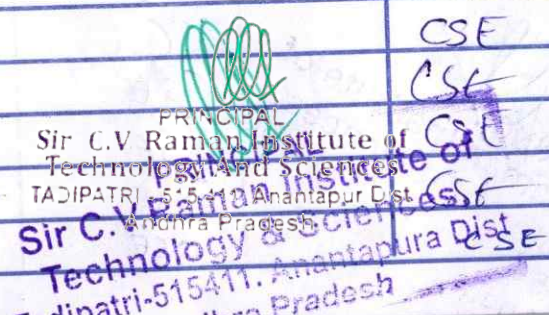 CSE
CSE
PRINCIPAL
Sir C.V Raman Institute of CSE
Technology And Sciences
TADIPATRI - 515 411, Anantapur Dist CSE
Andhra Pradesh
CSE
PRINCIPAL
Sir C.V.Raman Institute of
Technology & Sciences
Tadipatri-515411. Anantapura Dist
Andhra Pradesh